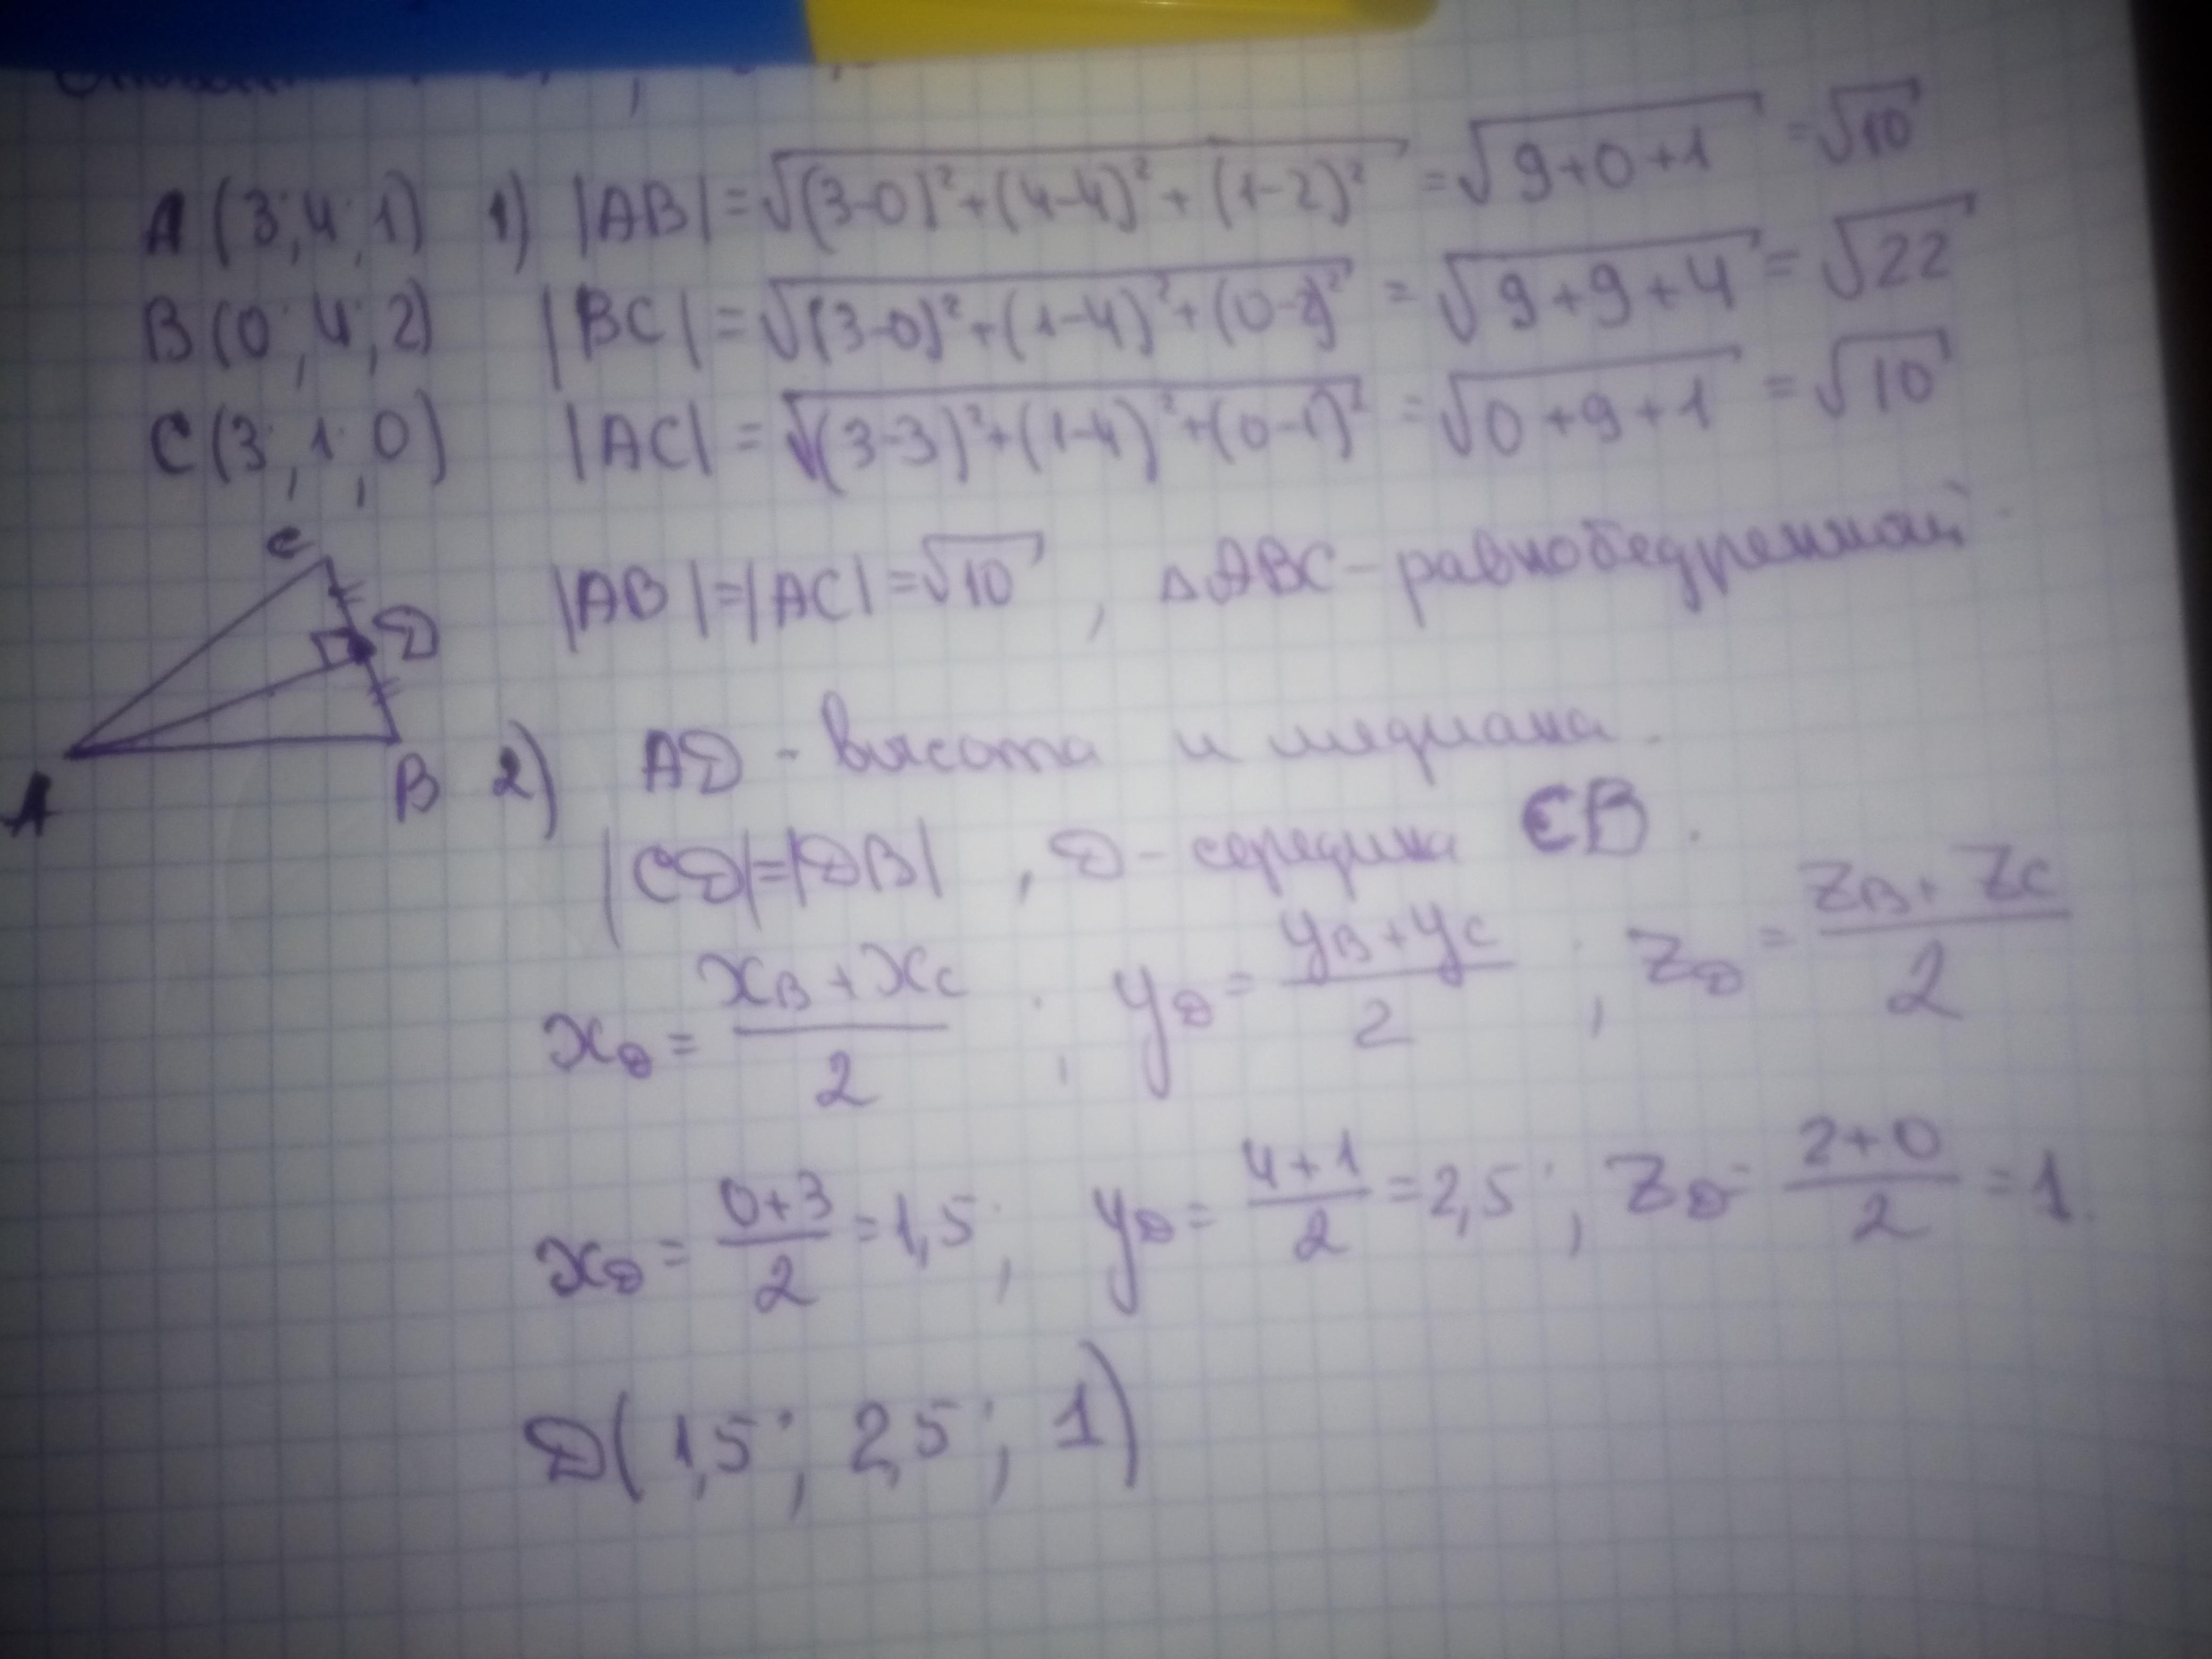 A(3;4;1) 1) |AB| = √((3-0)²+(4-4)²+(1-2)²) = √(9+0+1) = √10
B(0;4;2) |BC| = √((3-0)²+(1-4)²+(0-2)²) = √(9+9+4) = √22
C(3;1;0) |AC| = √((3-3)²+(1-4)²+(0-1)²) = √(0+9+1) = √10
|AB|=|AC|=√10, △ABC - равнобедренный
C
D
A
B
2) AD - высота и медиана.
|CD|=|DB|, D - середина CB.
x_D = (x_B + x_C)/2; y_D = (y_B + y_C)/2; z_D = (z_B + z_C)/2
x_D = (0+3)/2 = 1,5; y_D = (4+1)/2 = 2,5; z_D = (2+0)/2 = 1.
D(1,5; 2,5; 1)